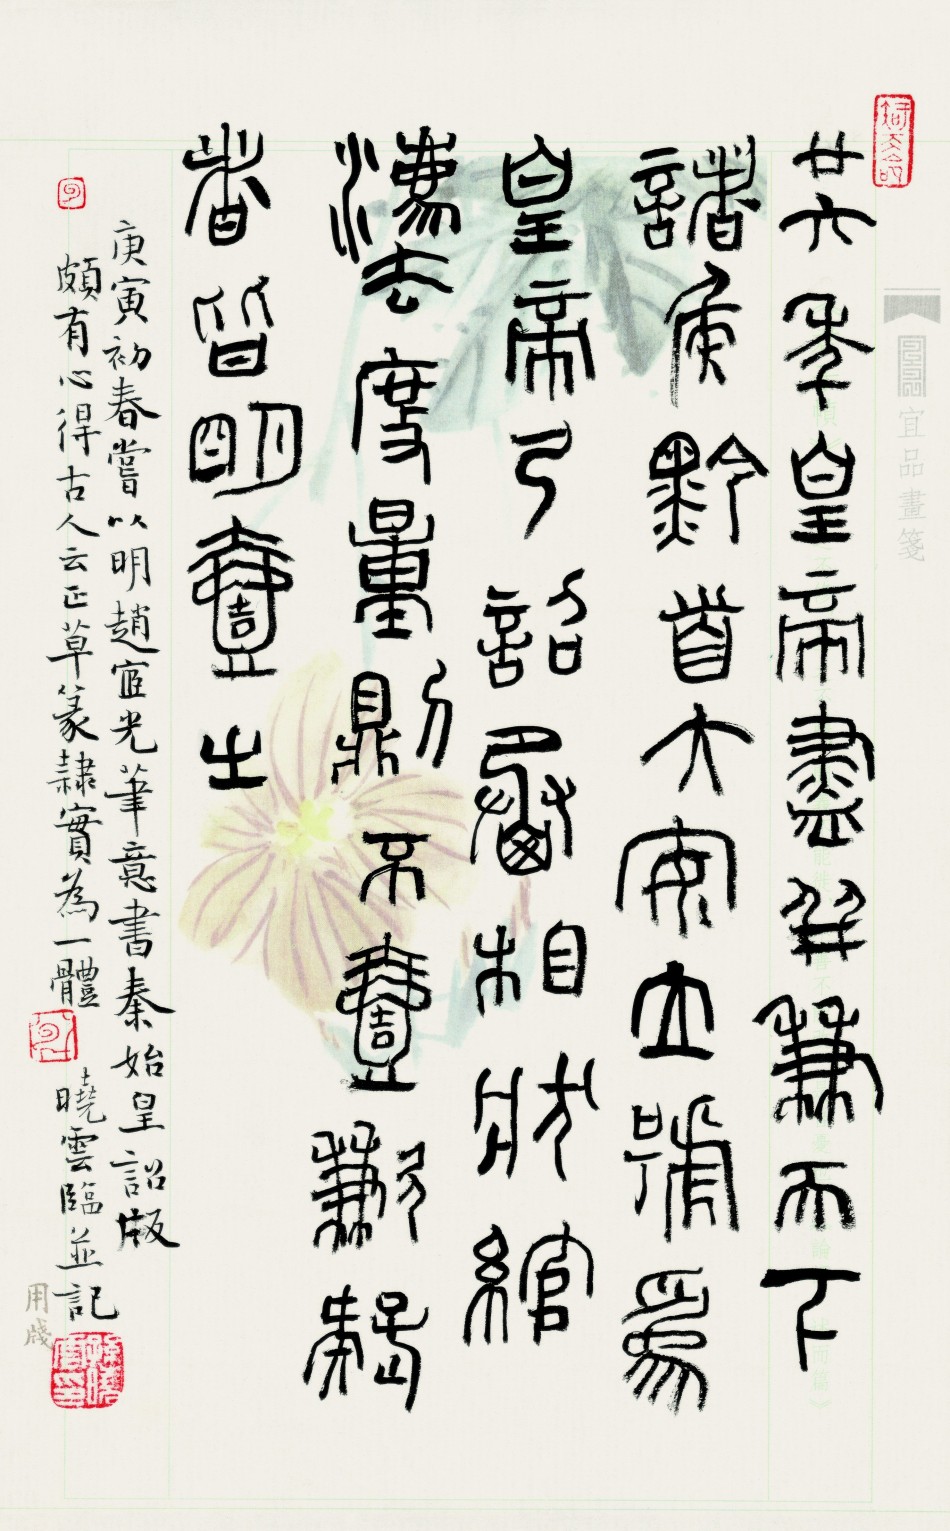 宜品畫箋
廿六年皇帝盡并兼天下
諸侯黔首大安立號為
皇帝乃詔丞相狀綰
灋度量則不壹歉疑
者皆明壹之
庚寅初春嘗以明趙宧光筆意書秦始皇詔版
頗有心得古人云正草篆隸實為一體 曉雲臨並記
用牋